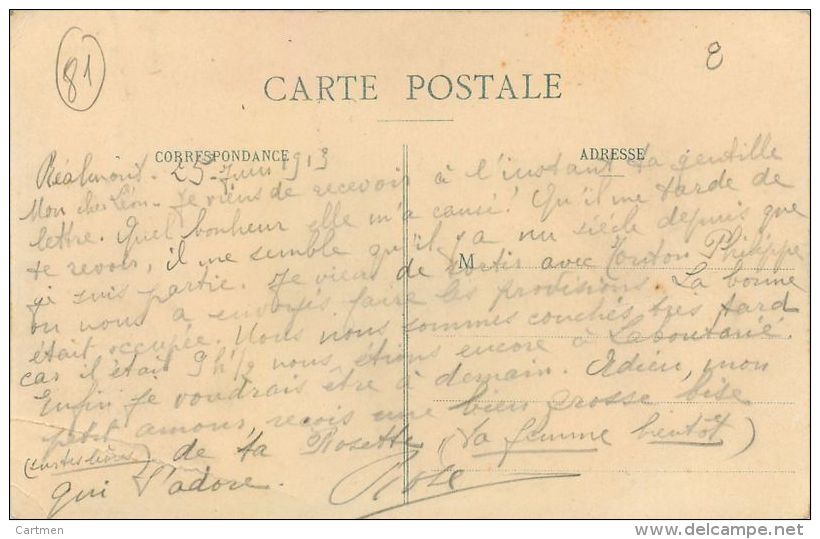 81
8
CARTE POSTALE
CORRESPONDANCE
ADRESSE
M
Réalmont. 25 Juin 1913
Mon cher Léon. Je viens de recevoir à l'instant ta gentille
lettre. Quel bonheur elle m'a causé! Qu'il me tarde de
te revoir, il me semble qu'il y a un siècle depuis que
je suis partie. Je viens de sortir avec Tonton Philippe
on nous a envoyés faire les provisions. La bonne
était occupée. Nous nous sommes couchés très tard
car il était 9 h 1/2 nous étions encore à Laboutarié.
Enfin je voudrais être à demain. Adieu, mon
petit amour, reçois une bien grosse bise
(sur tes lèvres) de ta Rosette (ta femme bientôt)
qui t'adore. Rose
Cartmen
http://www.delcampe.net